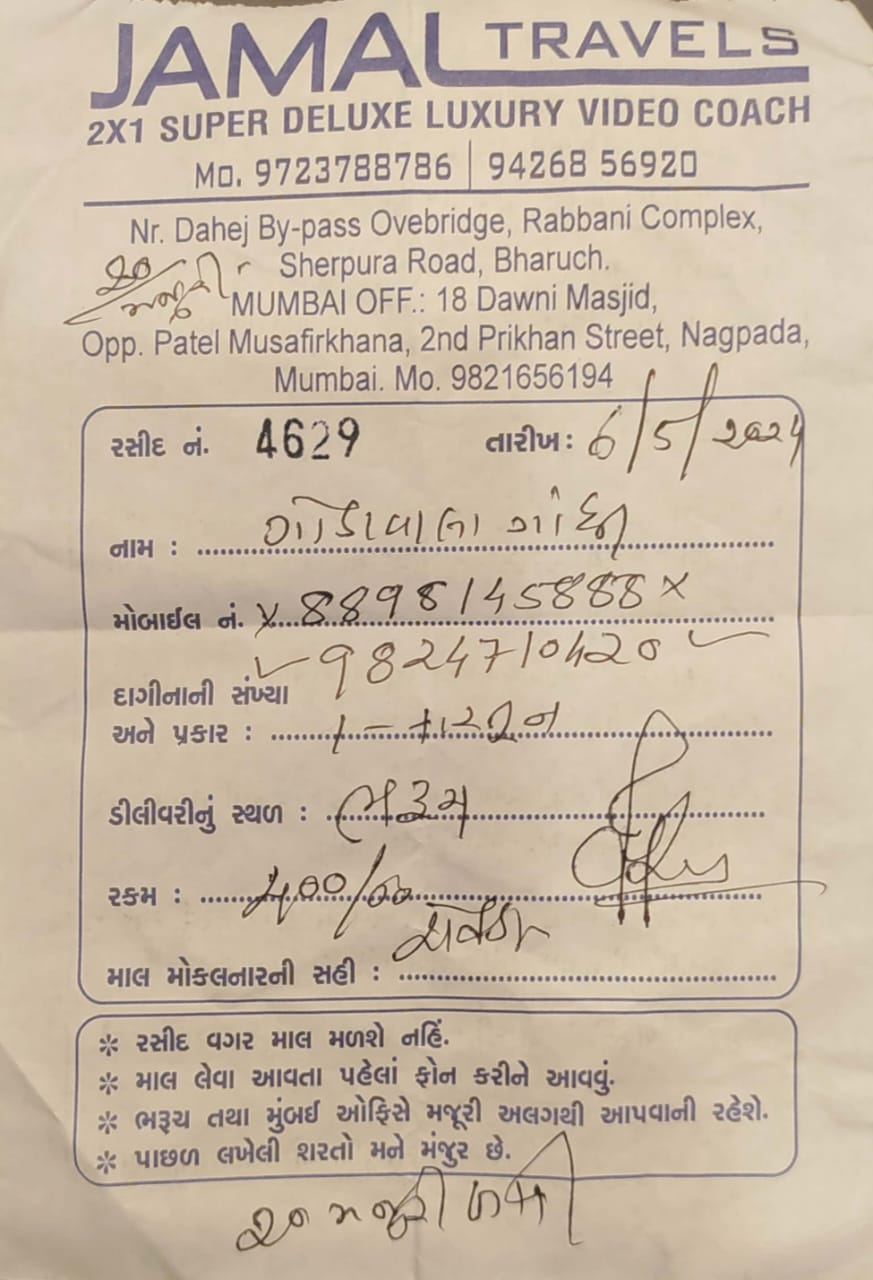 JAMAL TRAVELS
2X1 SUPER DELUXE LUXURY VIDEO COACH
Mo. 9723788786 | 94268 56920
Nr. Dahej By-pass Ovebridge, Rabbani Complex,
Sherpura Road, Bharuch.
૨૦/ મજુરી
MUMBAI OFF.: 18 Dawni Masjid,
Opp. Patel Musafirkhana, 2nd Prikhan Street, Nagpada,
Mumbai. Mo. 9821656194
રસીદ નં. 4629 તારીખ: 6/5/૨૦૨૫
નામ :
મોબાઈલ નં. x 8898145888 x
✓ 9824710420 ✓
દાગીનાની સંખ્યા
અને પ્રકાર : 1 –
ડીલીવરીનું સ્થળ : ભરૂચ
રકમ : ૪૦૦/૦૦
માલ મોકલનારની સહી :
* રસીદ વગર માલ મળશે નહિં.
* માલ લેવા આવતા પહેલાં ફોન કરીને આવવું.
* ભરૂચ તથા મુંબઈ ઓફિસે મજૂરી અલગથી આપવાની રહેશે.
* પાછળ લખેલી શરતો મને મંજુર છે.
૨૦ મજુરી બાકી